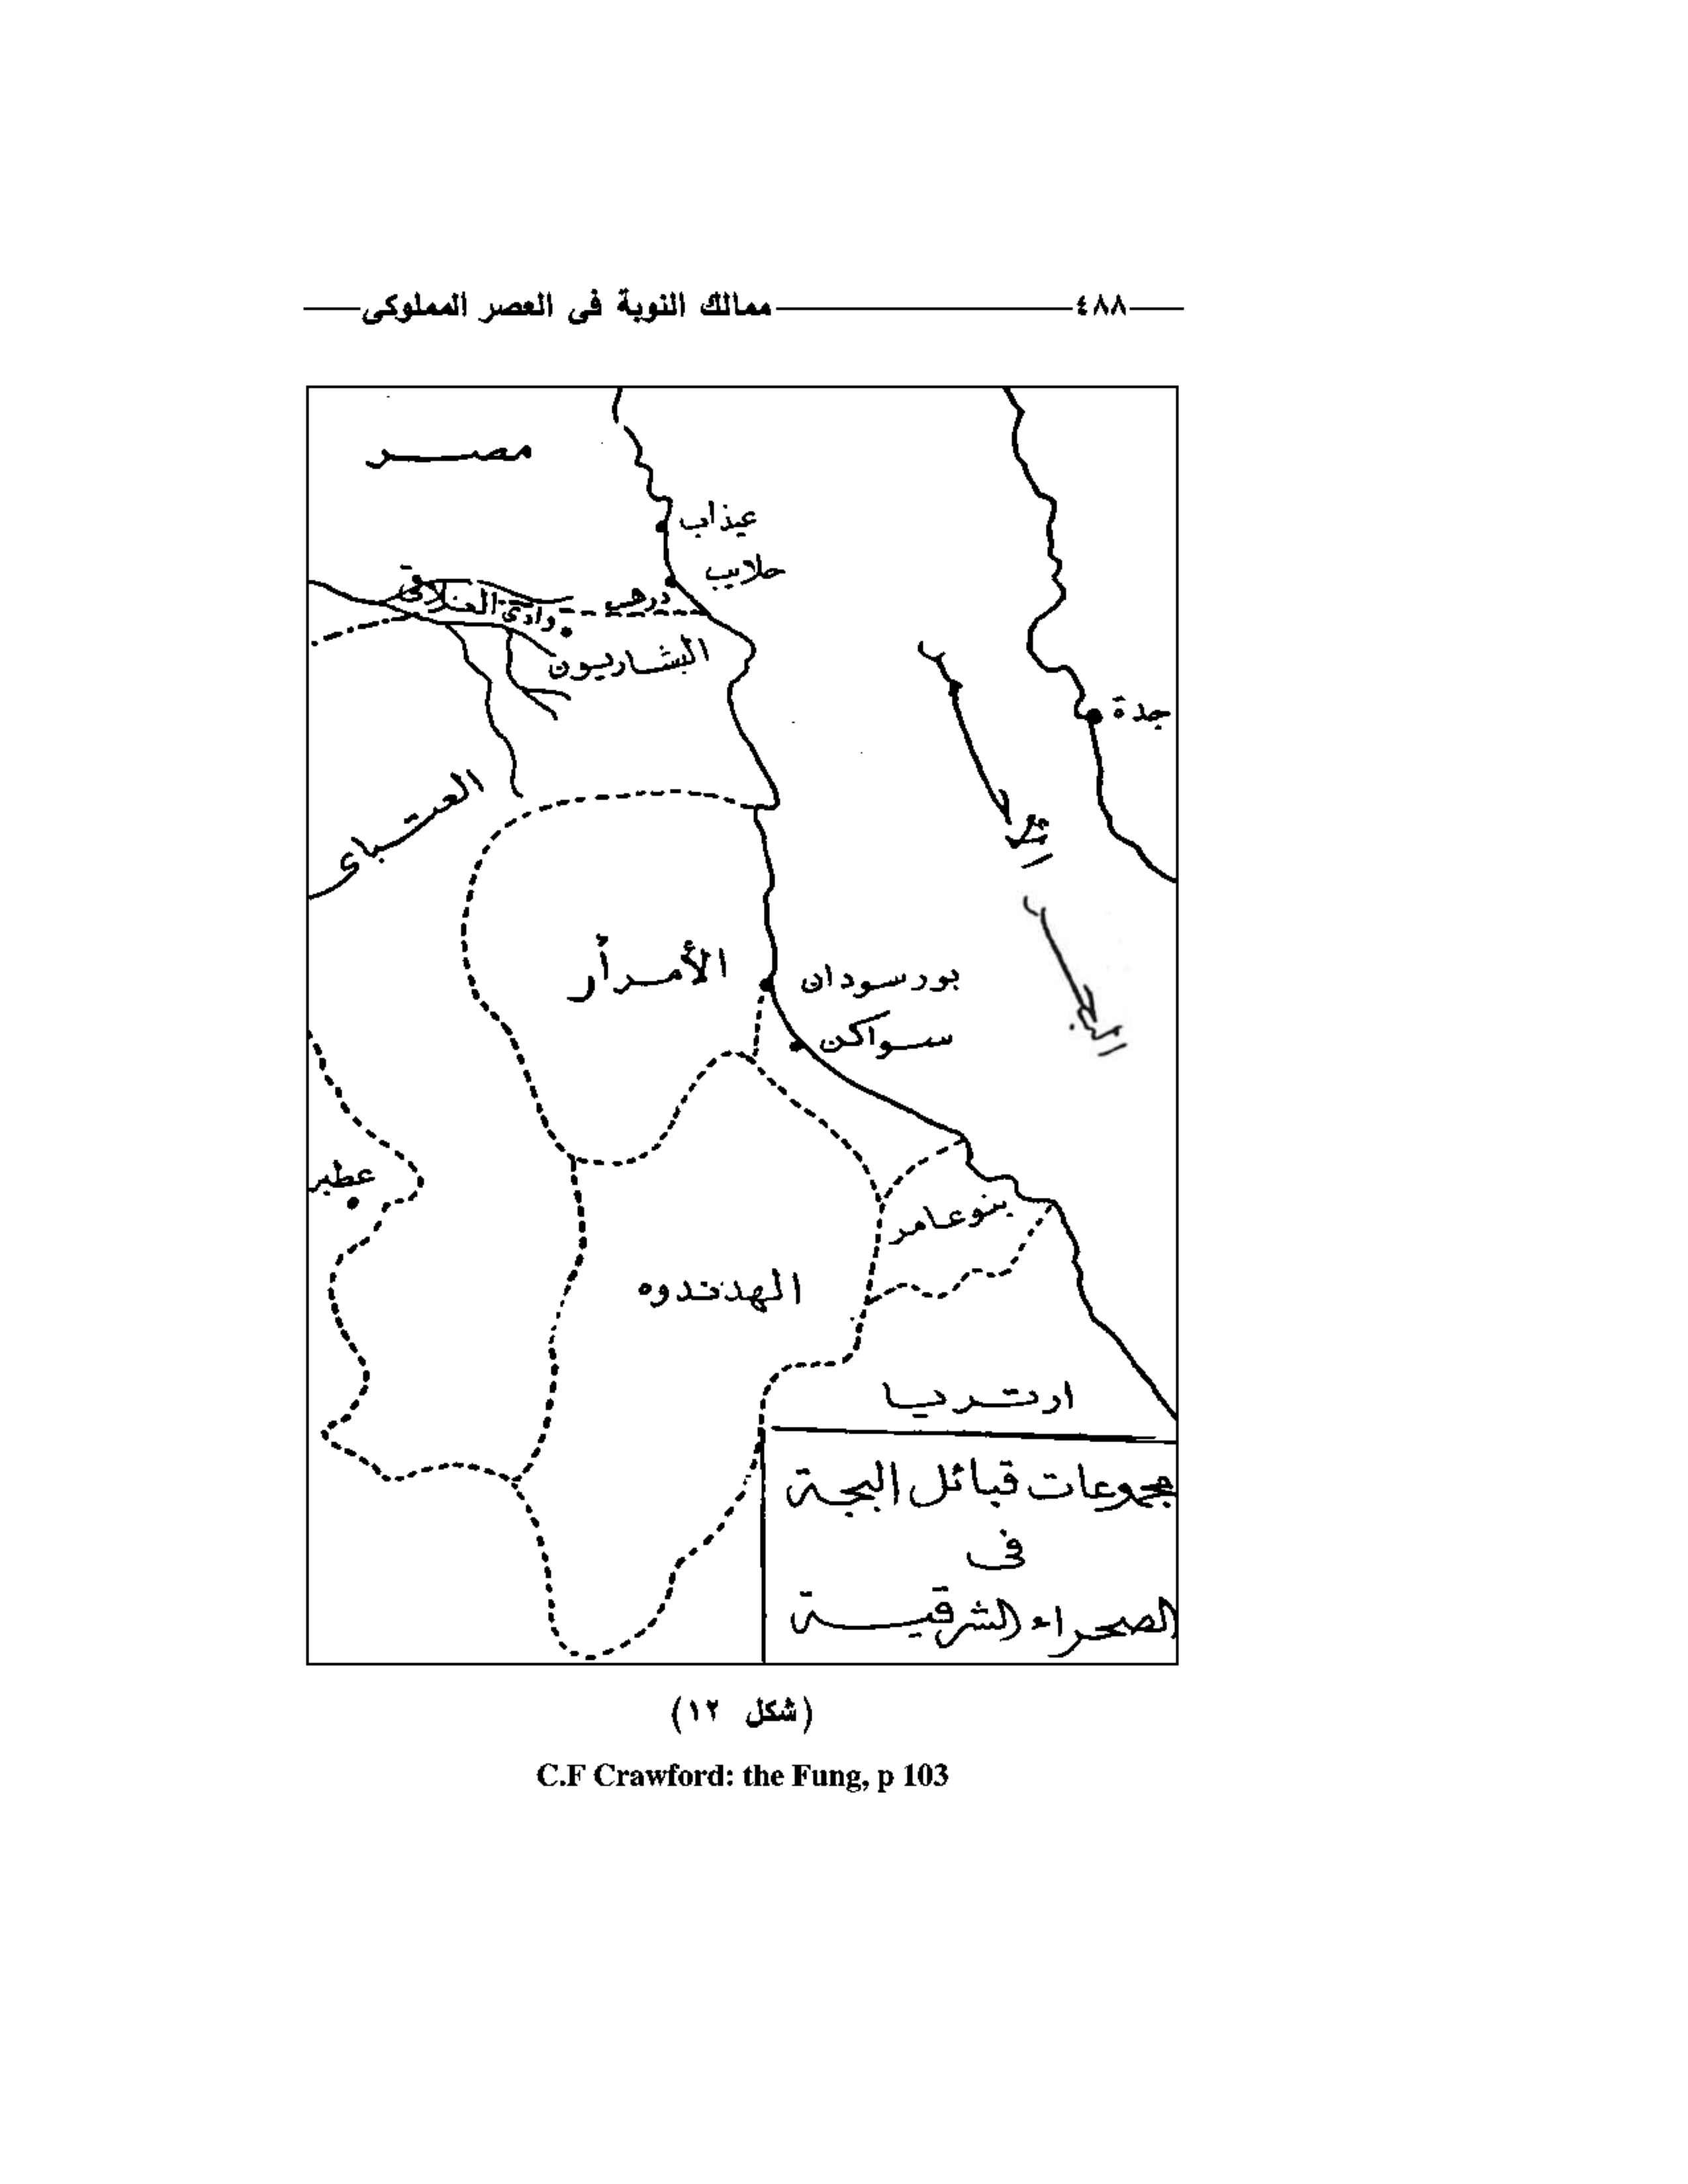 ٤٨٨ ممالك النوبة فى العصر المملوكى
مصر
عيذاب
حلايب
درهيب
وادى العلاقى
البشاريون
جدة
العتباى
الأمرأر
بورسودان
سواكن
البحر
عطبر
بنو عامر
الهدندوه
ارتريا
مجموعات قبائل البجة
فى
الصحراء الشرقية
(شكل ١٢)
C.F Crawford: the Fung, p 103